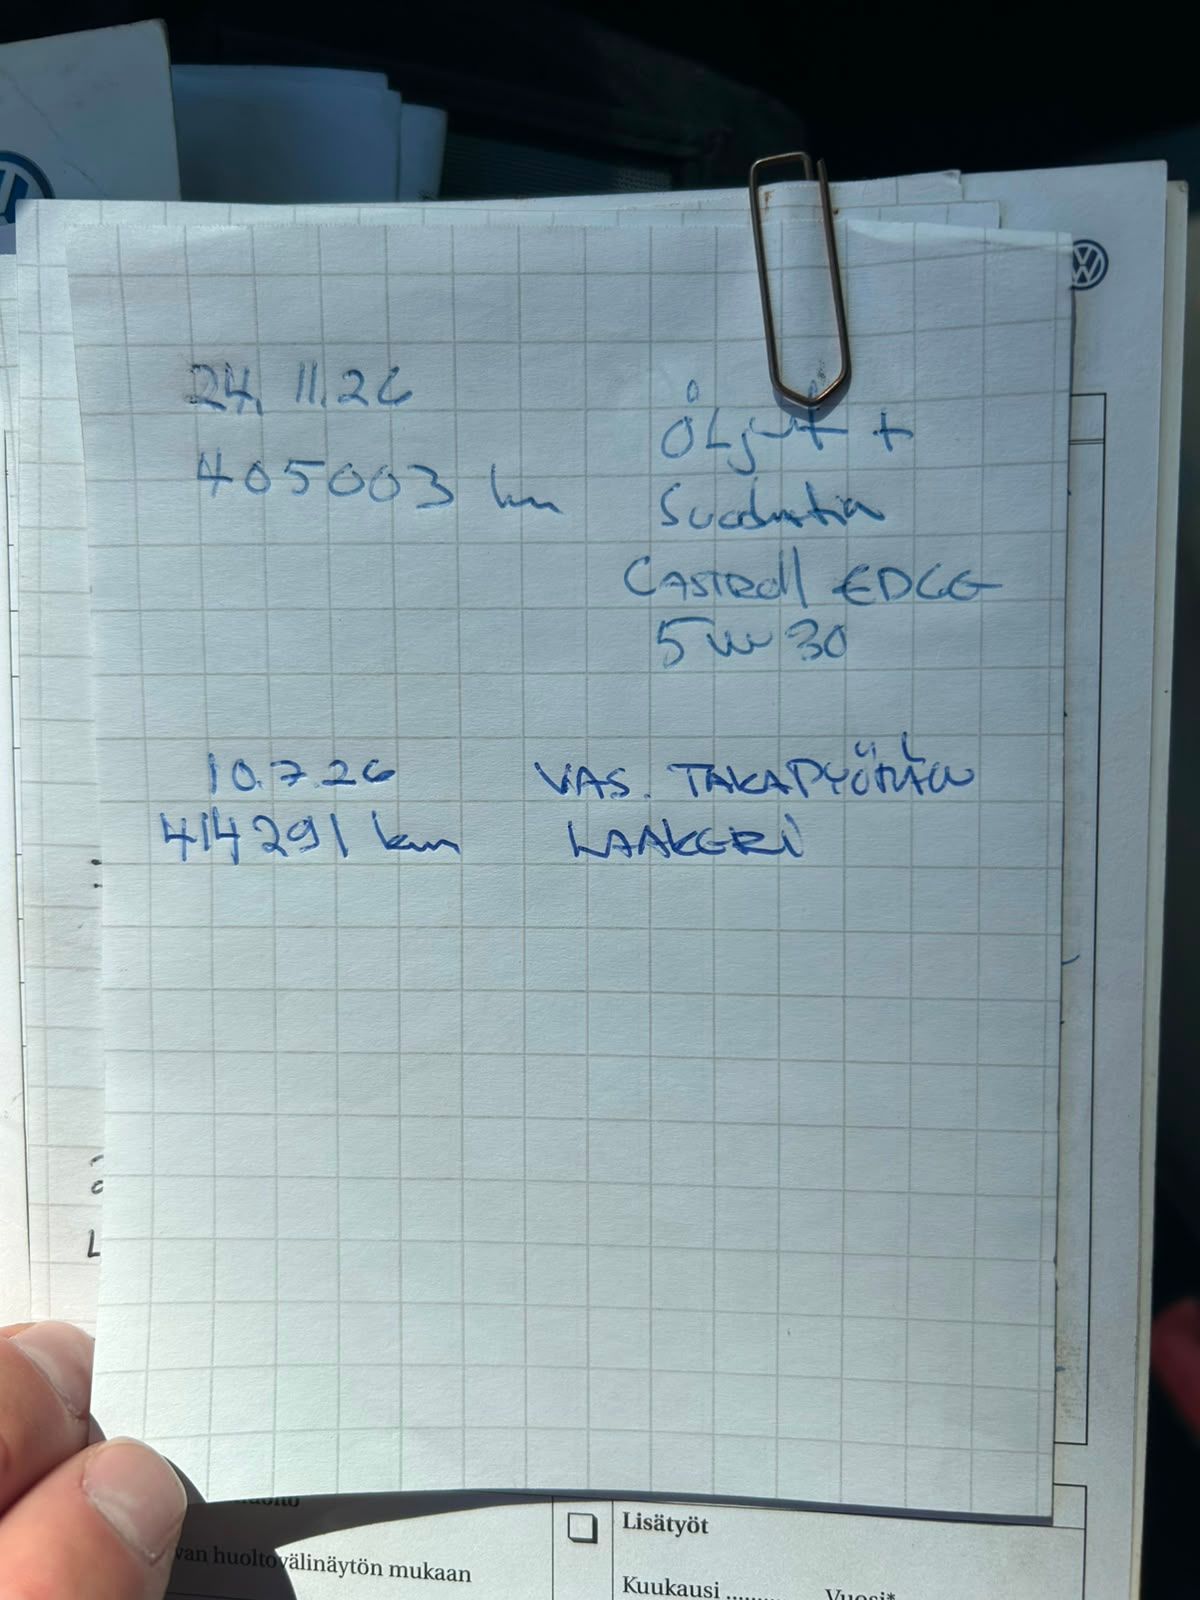 24.11.26
405003 km
Öljyt +
Suodatin
CASTROll EDGE
5w30
10.7.26
414291 km
VAS. TAKAPYÖRÄN
LAAKERI
van huoltovälinäytön mukaan
Lisätyöt
Kuukausi .......... Vuosi*